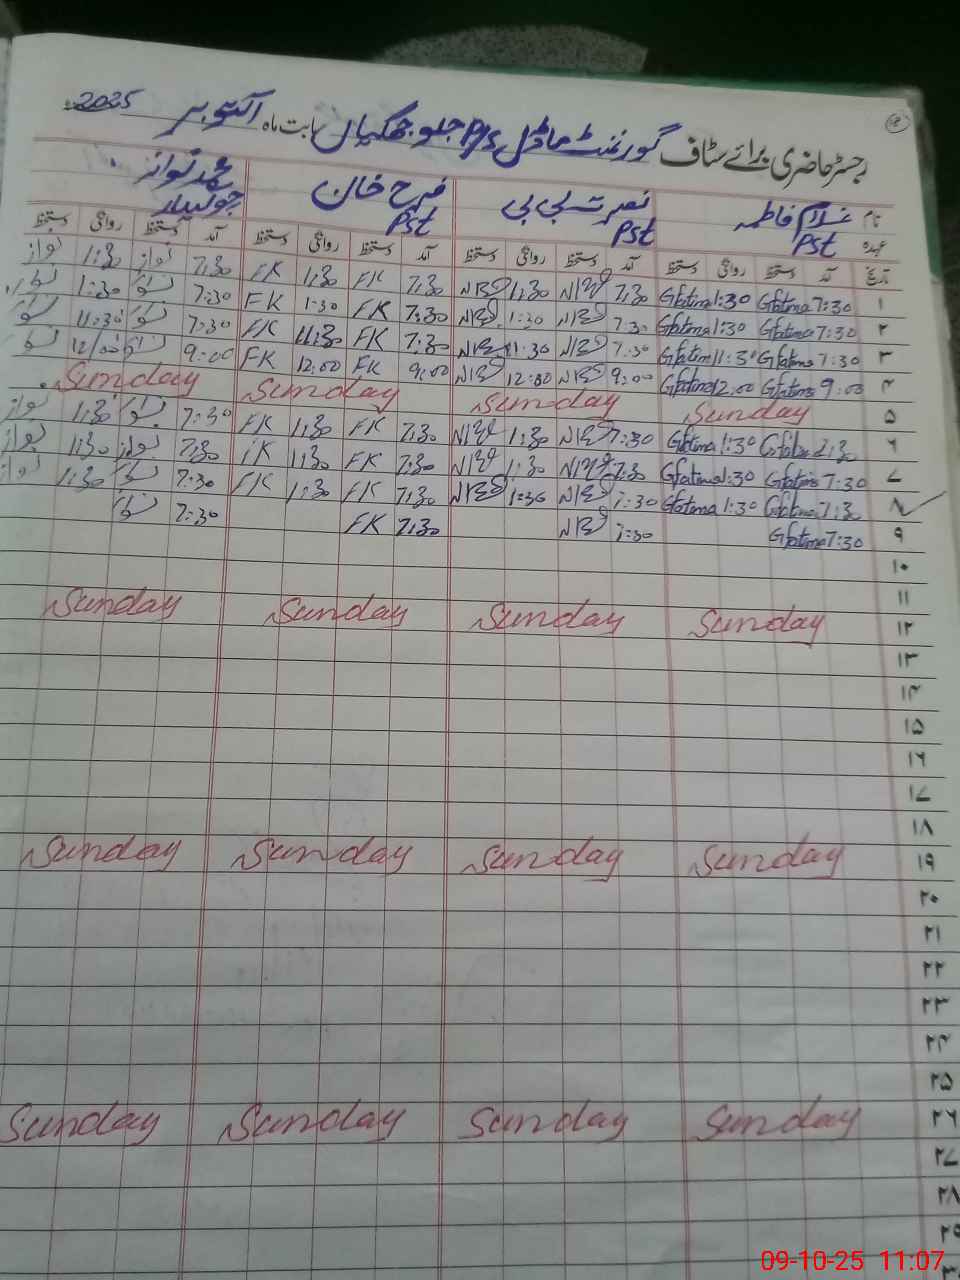 رجسٹر حاضری برائے سٹاف گورنمنٹ ماڈل P/S جلو جھکیاں بابت ماہ اکتوبر 2025ء
نام غلام فاطمہ نصرت بی بی فرح خان محمد نواز
عہدہ Pst Pst Pst چوکیدار
تاریخ آمد دستخط روانگی دستخط آمد دستخط روانگی دستخط آمد دستخط روانگی دستخط آمد دستخط روانگی دستخط
۱ 7:30 Gfatima 1:30 Gfatima 7:30 NBB 1:30 NBB 7:30 FK 1:30 FK 7:30 نواز 1:30 نواز
۲ 7:30 Gfatima 1:30 Gfatima 7:30 NBB 1:30 NBB 7:30 FK 1:30 FK 7:30 نواز 1:30 نواز
۳ 7:30 Gfatima 11:30 Gfatima 7:30 NBB 11:30 NBB 7:30 FK 11:30 FK 7:30 نواز 11:30 نواز
۴ 9:00 Gfatima 12:00 Gfatima 9:00 NBB 12:00 NBB 9:00 FK 12:00 FK 9:00 نواز 12:00 نواز
۵ Sunday Sunday Sunday Sunday
۶ 7:30 Gfatima 1:30 Gfatima 7:30 NBB 1:30 NBB 7:30 FK 1:30 FK 7:30 نواز 1:30 نواز
۷ 7:30 Gfatima 1:30 Gfatima 7:30 NBB 1:30 NBB 7:30 FK 1:30 FK 7:30 نواز 1:30 نواز
۸ 7:30 Gfatima 1:30 Gfatima 7:30 NBB 1:30 NBB 7:30 FK 1:30 FK 7:30 نواز 1:30 نواز
۹ 7:30 Gfatima 7:30 NBB 7:30 FK 7:30 نواز
۱۰
۱۱
۱۲ Sunday Sunday Sunday Sunday
۱۳
۱۴
۱۵
۱۶
۱۷
۱۸
۱۹ Sunday Sunday Sunday Sunday
۲۰
۲۱
۲۲
۲۳
۲۴
۲۵
۲۶ Sunday Sunday Sunday Sunday
۲۷
۲۸
۲۹
09-10-25 11:07